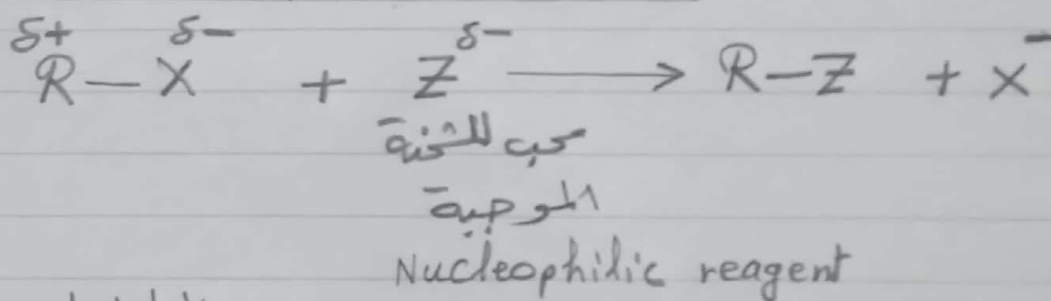 δ+ δ- δ-
R—X + Z ⟶ R—Z + X⁻
محب للشحنة
الموجبة
Nucleophilic reagent